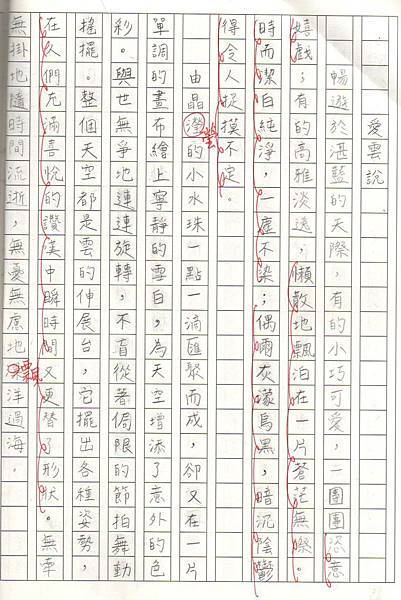 愛雲說
暢遊於湛藍的天際，有的小巧可愛，一團團恣意
嬉戲；有的高雅淡遠，懶散地飄泊在一片蒼茫無際。
時而潔白純淨，一塵不染；偶爾灰濛烏黑，暗沉陰鬱
得令人捉摸不定。
由晶瀅的小水珠一點一滴匯聚而成，卻又在一片
瑩
單調的畫布繪上寧靜的雪白，為天空增添了意外的色
彩。與世無爭地連連旋轉，不盲從著侷限的節拍舞動
搖擺。整個天空都是雲的伸展台，它擺出各種姿勢，
在人們充滿喜悅的讚漢中瞬時間又更替了形狀。無牽
無掛地隨時間流逝，無憂無慮地飄洋過海。